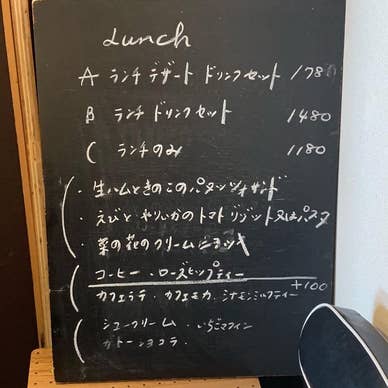 Lunch
A ランチ デザート ドリンクセット 178
B ランチ ドリンクセット 1480
C ランチのみ 1180
・生ハムときのこの サンド
・えびと やりいかのトマトリゾット又はパスタ
・菜の花のクリームニョッキ
コーヒー ・ローズヒップティー
カフェラテ ・カフェモカ ・シナモンミルクティー +100
シュークリーム ・いちごマフィン
ガトーショコラ ・